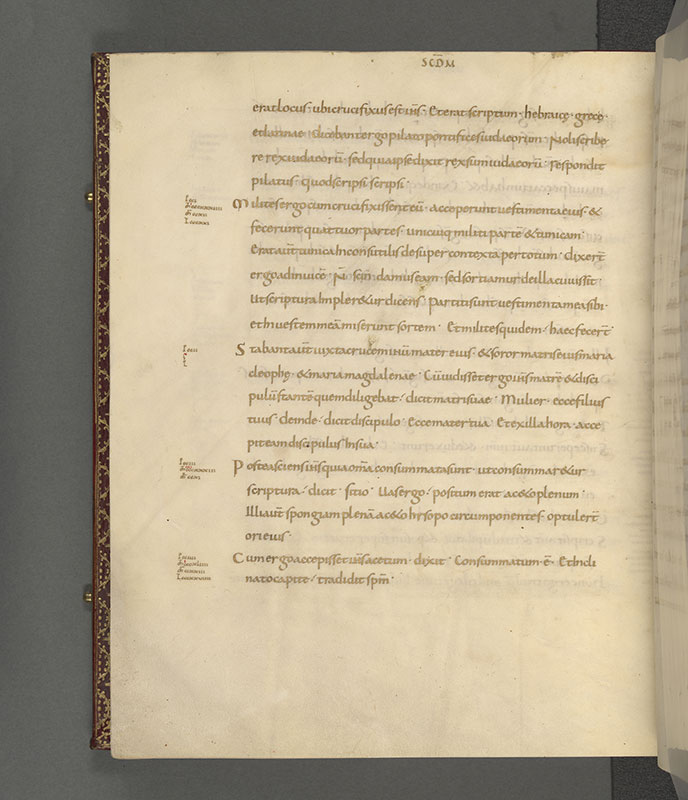 SCDM
erat locus · ubi crucifixus est ihs̄ · Et erat scriptum · hebraicę · grecę ·
et latinae · dicebant ergo pilato pontifices iudaeorum · Noli scribe
re rex iudaeorū · sed quia ipse dixit rex sum iudaeorū · respondit
pilatus · quod scripsi scripsi ·
Milites ergo cum crucifixissent eū · acceperunt uestimenta eius · &
fecerunt quattuor partes · unicuiq; militi partē & tunicam ·
Erat aut̄ tunica Inconsutilis desuper contexta per totum · dixer̄t
ergo adinuicē · N̄ scindamus eam · sed sortiamur de illa cuius sit ·
Ut scriptura Impler&ur dicens · Partiti sunt uestimenta mea sibi ·
et In ueste mea miserunt sortem · Et milites quidem · haec fecer̄t ·
Stabant aut̄ iuxta crucem ihū mater eius · & soror matris eius maria
cleophę · & maria magdalenae · Cū uidisset ergo ihs̄ matrē & disci
pulū stantē quem diligebat · dicit matri suae · Mulier · ecce filius
tuus · deinde · dicit discipulo · Ecce mater tua · Et ex illa hora · acce
pit eam discipulus In sua ·
Postea sciens ihs̄ quia om̄a consummata sunt · ut consummar&ur
scriptura · dicit · sitio · Uas ergo · positum erat ac&o plenum ·
Illi aut̄ spongiam plenā ac&o hysopo circumponentes · optuler̄t
ori eius ·
Cum ergo accepisset ihs̄ acetum · dixit · Consummatum · ē · Et Incli
nato capite · tradidit spm̄ ·